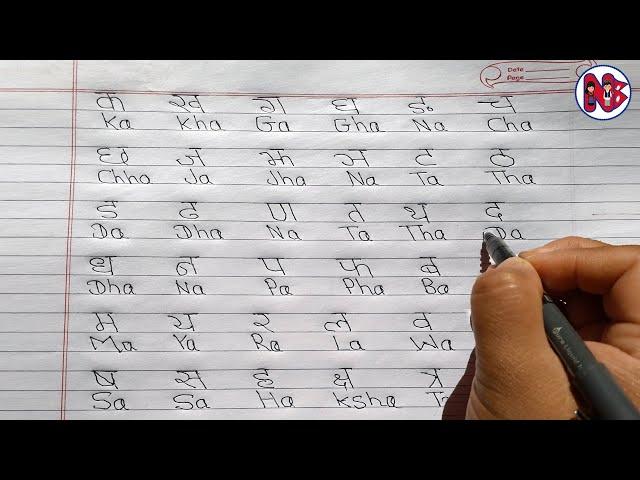 Date
Page
क ख ग घ ङ च
Ka Kha Ga Gha Na Cha
छ ज झ ञ ट ठ
Chha Ja Jha Na Ta Tha
ड ढ ण त थ द
Da Dha Na Ta Tha Da
ध न प फ ब
Dha Na Pa Pha Ba
म य र ल व
Ma Ya Ra La Wa
ष स ह क्ष त्र
Sa Sa Ha Ksha